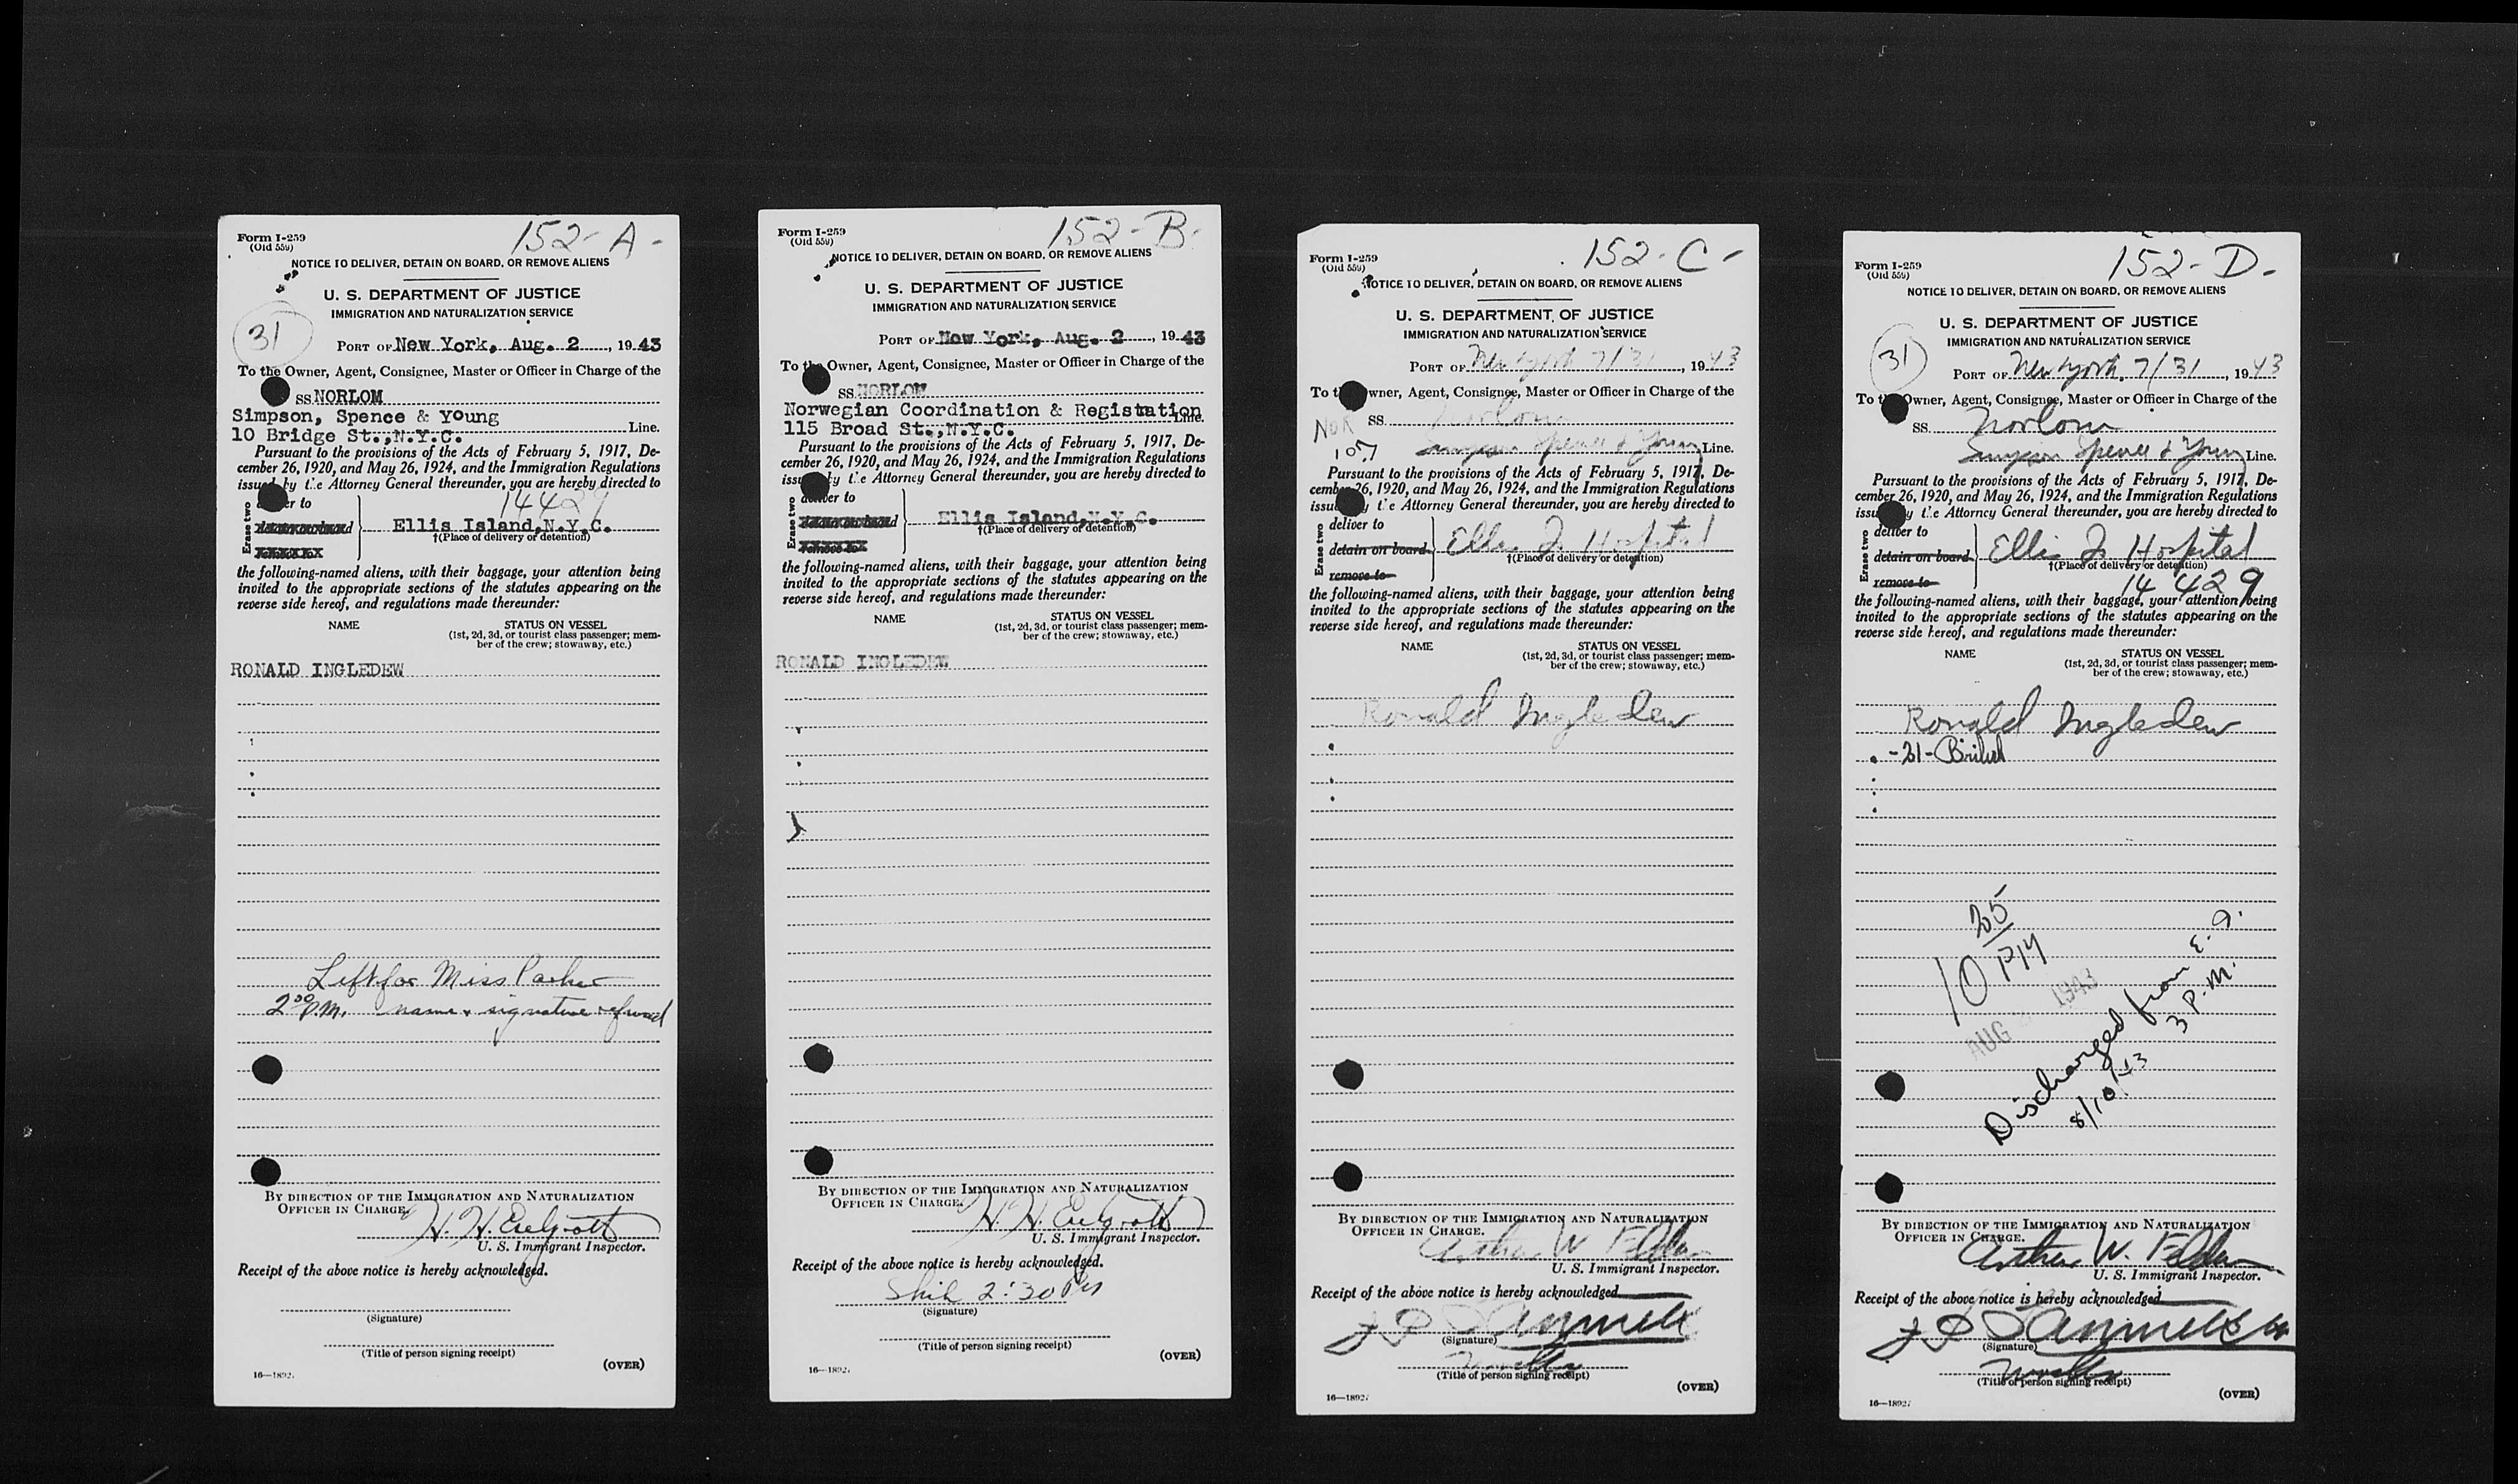 152-A-
Form I-259
(Old 559)
NOTICE TO DELIVER, DETAIN ON BOARD, OR REMOVE ALIENS
U. S. DEPARTMENT OF JUSTICE
IMMIGRATION AND NATURALIZATION SERVICE
31
PORT OF New York, Aug. 2, 1943
To the Owner, Agent, Consignee, Master or Officer in Charge of the
SS NORLOM
Simpson, Spence & Young
10 Bridge St.,N.Y.C. Line.
Pursuant to the provisions of the Acts of February 5, 1917, De-
cember 26, 1920, and May 26, 1924, and the Immigration Regulations
issued by the Attorney General thereunder, you are hereby directed to
14429
Erase two
Ellis Island,N.Y.C.
†(Place of delivery or detention)
the following-named aliens, with their baggage, your attention being
invited to the appropriate sections of the statutes appearing on the
reverse side hereof, and regulations made thereunder:
NAME STATUS ON VESSEL
(1st, 2d, 3d, or tourist class passenger; mem-
ber of the crew; stowaway, etc.)
RONALD INGLEDEW
Left for Miss Parker
2 00 P.M. name & signature refused
BY DIRECTION OF THE IMMIGRATION AND NATURALIZATION
OFFICER IN CHARGE.
U. S. Immigrant Inspector.
Receipt of the above notice is hereby acknowledged.
(Signature)
(Title of person signing receipt)
(OVER)
152-B-
Form I-259
(Old 559)
NOTICE TO DELIVER, DETAIN ON BOARD, OR REMOVE ALIENS
U. S. DEPARTMENT OF JUSTICE
IMMIGRATION AND NATURALIZATION SERVICE
PORT OF New York, Aug. 2, 1943
To the Owner, Agent, Consignee, Master or Officer in Charge of the
SS NORLOM
Norwegian Coordination & Registration
115 Broad St.,N.Y.C. Line.
Pursuant to the provisions of the Acts of February 5, 1917, De-
cember 26, 1920, and May 26, 1924, and the Immigration Regulations
issued by the Attorney General thereunder, you are hereby directed to
Erase two
deliver to
Ellis Island,N.Y.C.
†(Place of delivery or detention)
the following-named aliens, with their baggage, your attention being
invited to the appropriate sections of the statutes appearing on the
reverse side hereof, and regulations made thereunder:
NAME STATUS ON VESSEL
(1st, 2d, 3d, or tourist class passenger; mem-
ber of the crew; stowaway, etc.)
RONALD INGLEDEW
BY DIRECTION OF THE IMMIGRATION AND NATURALIZATION
OFFICER IN CHARGE.
U. S. Immigrant Inspector.
Receipt of the above notice is hereby acknowledged.
2:30 PM
(Signature)
(Title of person signing receipt)
(OVER)
152-C-
Form I-259
(Old 559)
NOTICE TO DELIVER, DETAIN ON BOARD, OR REMOVE ALIENS
U. S. DEPARTMENT OF JUSTICE
IMMIGRATION AND NATURALIZATION SERVICE
PORT OF New York 7/31, 1943
To the Owner, Agent, Consignee, Master or Officer in Charge of the
NOR SS Norlom
107 Simpson Spence & Young Line.
Pursuant to the provisions of the Acts of February 5, 1917, De-
cember 26, 1920, and May 26, 1924, and the Immigration Regulations
issued by the Attorney General thereunder, you are hereby directed to
Erase two
deliver to
detain on board
remove to
Ellis Is Hospital
†(Place of delivery or detention)
the following-named aliens, with their baggage, your attention being
invited to the appropriate sections of the statutes appearing on the
reverse side hereof, and regulations made thereunder:
NAME STATUS ON VESSEL
(1st, 2d, 3d, or tourist class passenger; mem-
ber of the crew; stowaway, etc.)
Ronald Ingledew
BY DIRECTION OF THE IMMIGRATION AND NATURALIZATION
OFFICER IN CHARGE.
Arthur W.
U. S. Immigrant Inspector.
Receipt of the above notice is hereby acknowledged
(Signature)
(Title of person signing receipt)
(OVER)
152-D-
Form I-259
(Old 559)
NOTICE TO DELIVER, DETAIN ON BOARD, OR REMOVE ALIENS
U. S. DEPARTMENT OF JUSTICE
IMMIGRATION AND NATURALIZATION SERVICE
31
PORT OF New York, 7/31, 1943
To the Owner, Agent, Consignee, Master or Officer in Charge of the
SS Norlom
Simpson Spence & Young Line.
Pursuant to the provisions of the Acts of February 5, 1917, De-
cember 26, 1920, and May 26, 1924, and the Immigration Regulations
issued by the Attorney General thereunder, you are hereby directed to
Erase two
deliver to
detain on board
remove to
Ellis Is Hospital
†(Place of delivery or detention)
14 429
the following-named aliens, with their baggage, your attention being
invited to the appropriate sections of the statutes appearing on the
reverse side hereof, and regulations made thereunder:
NAME STATUS ON VESSEL
(1st, 2d, 3d, or tourist class passenger; mem-
ber of the crew; stowaway, etc.)
Ronald Ingledew
-21- British
10 25 PM
AUG 1943
Discharged from E. I.
8/10/43 3 P.M.
BY DIRECTION OF THE IMMIGRATION AND NATURALIZATION
OFFICER IN CHARGE.
Arthur W.
U. S. Immigrant Inspector.
Receipt of the above notice is hereby acknowledged
(Signature)
(Title of person signing receipt)
(OVER)